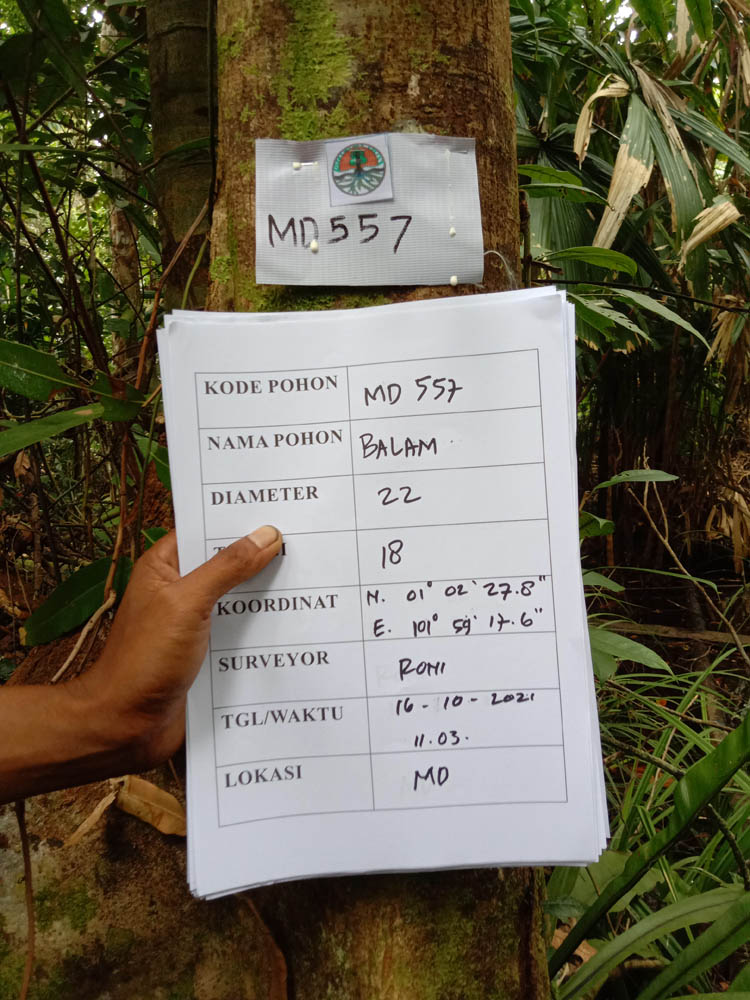 MD557
KODE POHON MD 557
NAMA POHON BALAM
DIAMETER 22
18
KOORDINAT N. 01° 02' 27.8"
E. 101° 59' 17.6"
SURVEYOR RONI
TGL/WAKTU 16-10-2021
11.03.
LOKASI MD